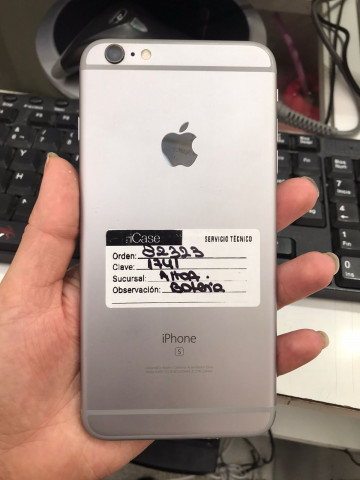 iCase SERVICIO TÉCNICO
Orden: 82323
Clave: 1741
Sucursal:
Observación: Bateria
iPhone
S